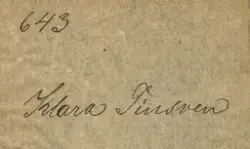 643
Klara Tinsven